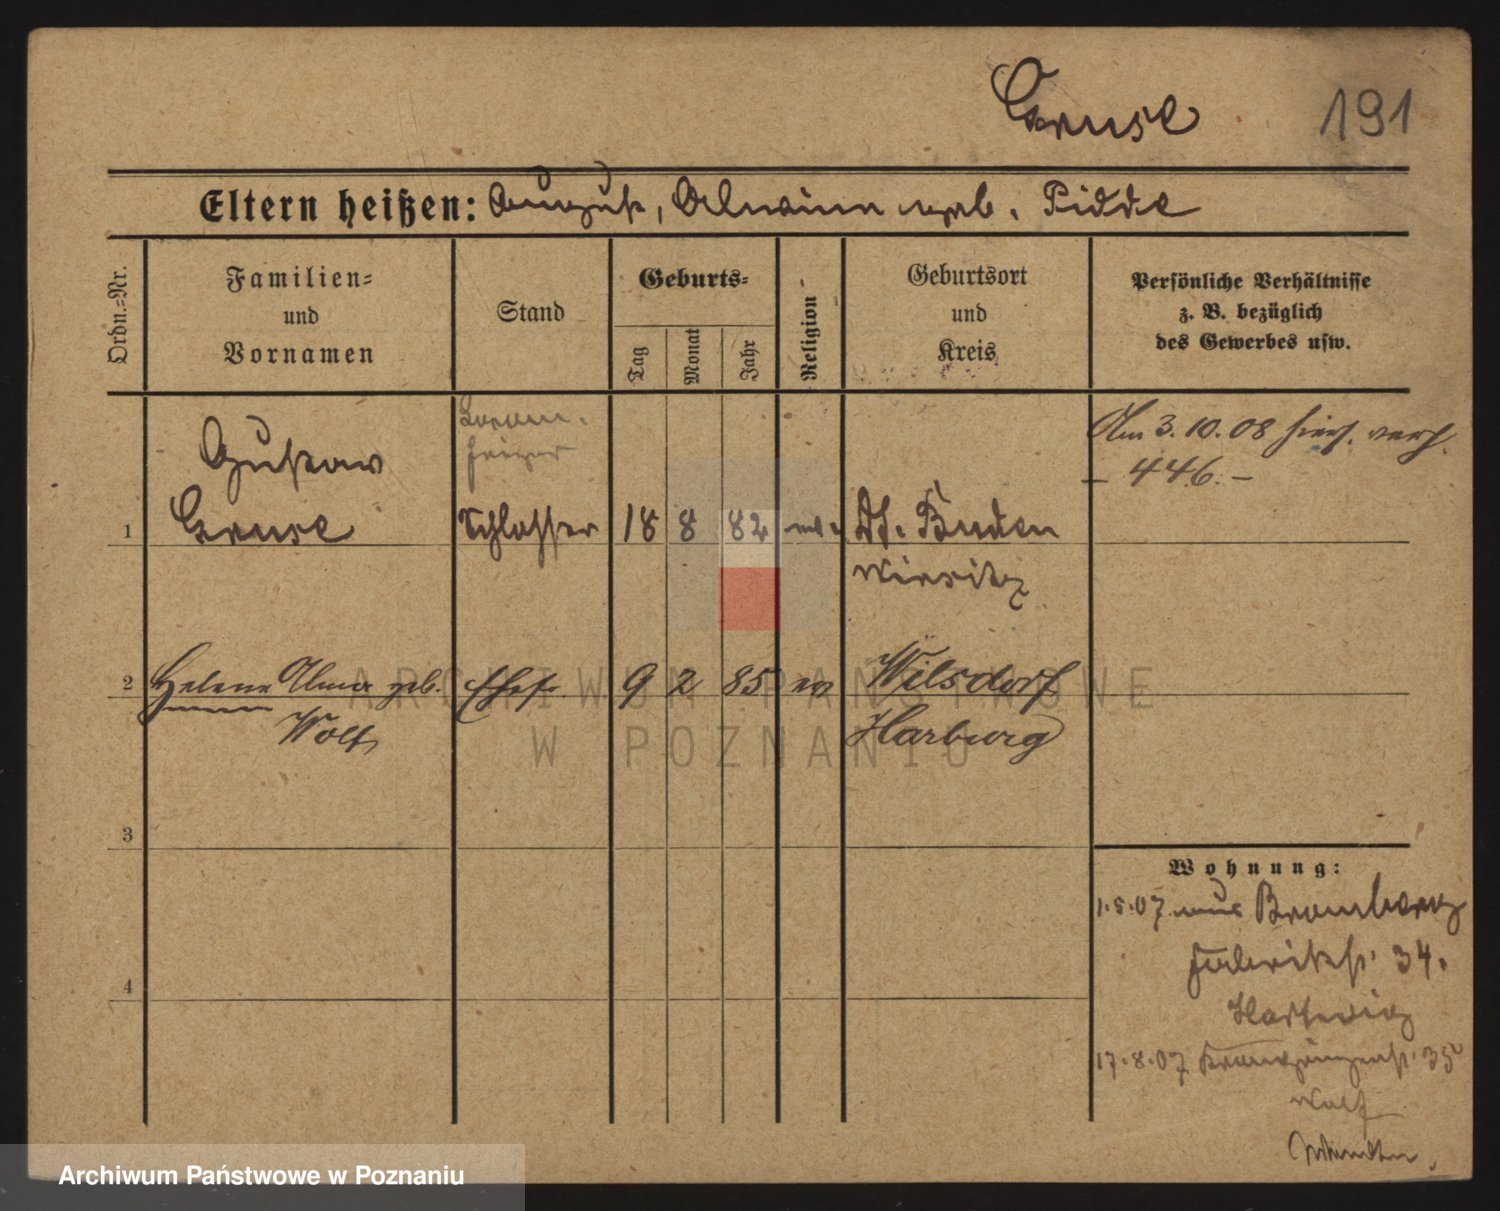 Gruse 191
Eltern heißen: August, Alwine geb. Pidde
Ordn.=Nr.
Familien=
und
Vornamen
Stand
Geburts=
Tag
Monat
Jahr
Religion
Geburtsort
und
Kreis
Persönliche Verhältnisse
z. B. bezüglich
des Gewerbes usw.
Gustav
heizer
Am 3.10.08 hier verh.
– 446. –
1 Gruse Schlosser 18 8 82 ev. Df. Buden
Wirsitz
2 Helene Alma geb. Ehefr. 9 2 85 ev Wilsdorf
Wolf Harburg
3
4
Wohnung:
1.5.07 aus Bromberg
Fabrikst. 34.
Hartwig
17.8.07 35
Wolf
ARCHIWUM PAŃSTWOWE
W POZNANIU
Archiwum Państwowe w Poznaniu